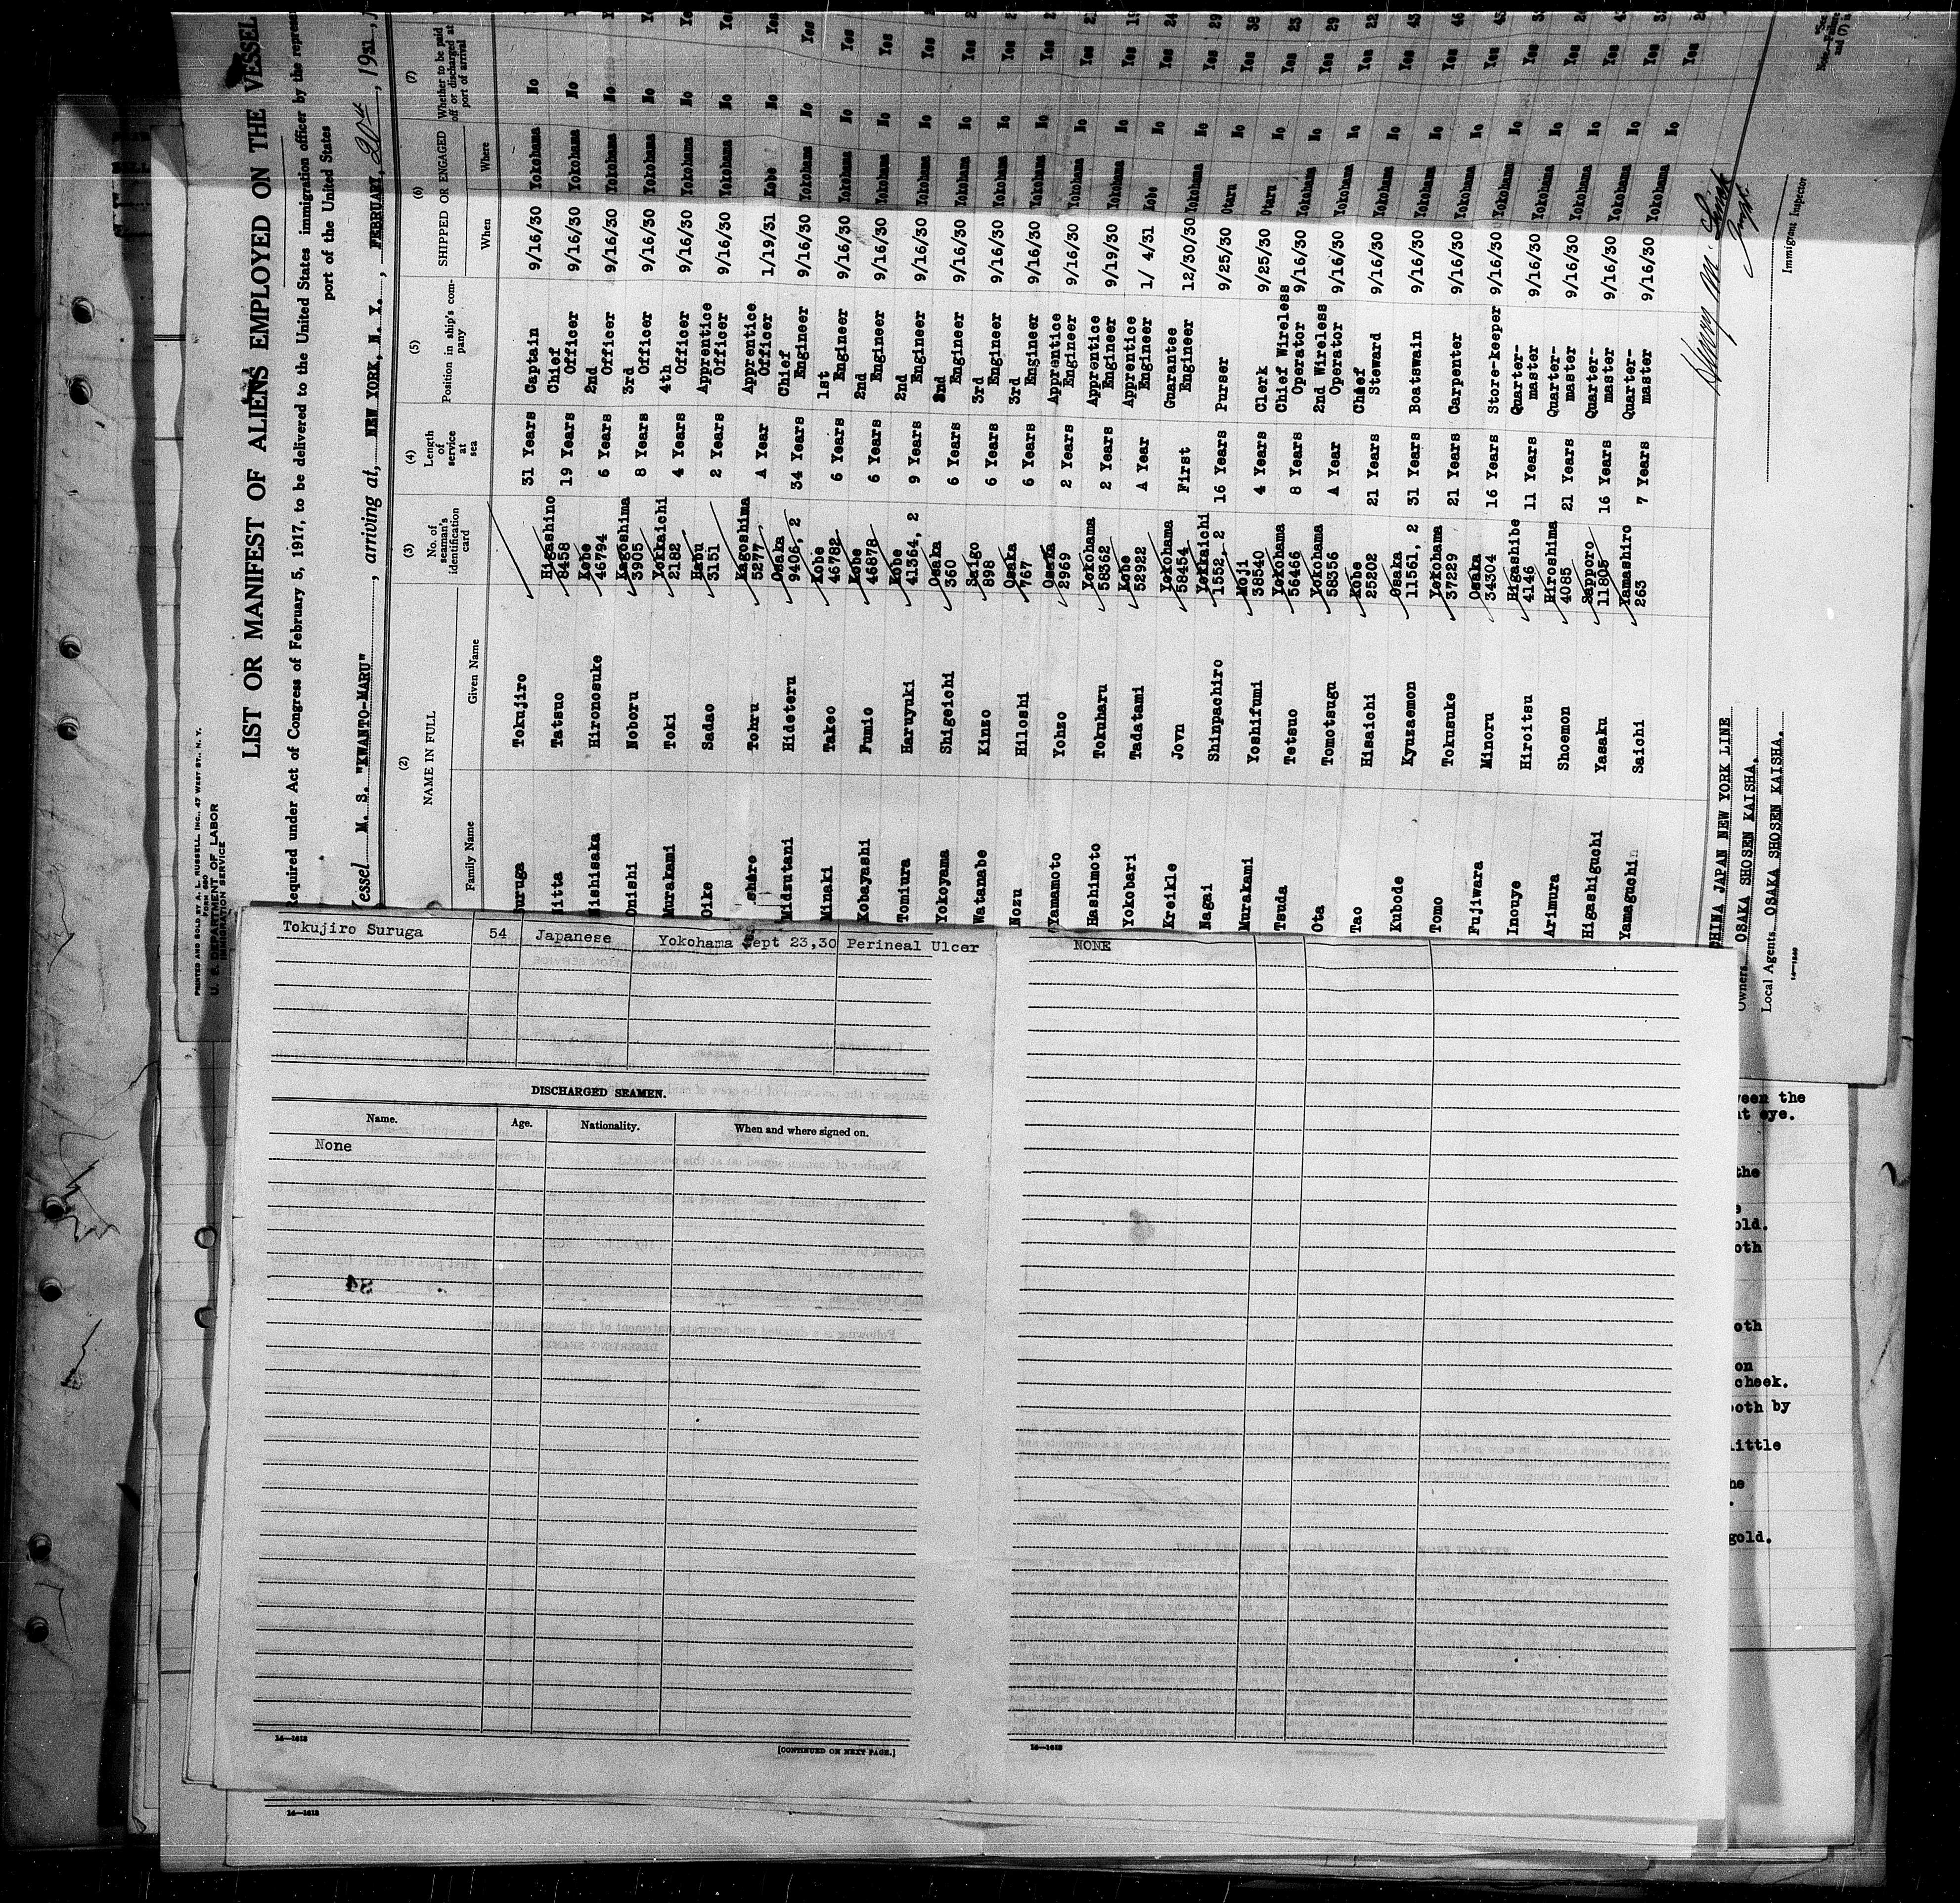 PRINTED AND SOLD BY A. L. RUSSELL, INC., 47 WEST ST., N. Y.
FORM 680
U. S. DEPARTMENT OF LABOR
IMMIGRATION SERVICE
LIST OR MANIFEST OF ALIENS EMPLOYED ON THE VESSEL
Required under Act of Congress of February 5, 1917, to be delivered to the United States immigration officer by the
port of the United States
Vessel M. S. "KWANTO-MARU", arriving at, NEW YORK, N. Y., FEBRUARY, 20th, 1931,
(2) (3) (4) (5) (6) (7)
NAME IN FULL
Family Name Given Name
No. of seaman's identification card
Length of service at sea
Position in ship's company
SHIPPED OR ENGAGED
When Where
Whether to be paid off or discharged at port of arrival
Suruga Tokujiro 31 Years Captain 9/16/30 Yokohama No
Nitta Tatsuo Higashino 8458 19 Years Chief Officer 9/16/30 Yokohama No
Nishisaka Hironosuke Kobe 46794 6 Years 2nd Officer 9/16/30 Yokohama No
Onishi Noboru Kagoshima 3905 8 Years 3rd Officer 9/16/30 Yokohama No
Murakami Toki Yokkaichi 2182 4 Years 4th Officer 9/16/30 Yokohama No
Oike Sadao Habu 3151 2 Years Apprentice Officer 9/16/30 Yokohama No
Tohru Kagoshima 5277 A Year Apprentice Officer 1/19/31 Kobe No
Midsutani Hideteru Osaka 9406, 2 34 Years Chief Engineer 9/16/30 Yokohama No Yes
Minaki Takeo Kobe 46782 6 Years 1st Engineer 9/16/30 Yokohama No Yes
Kobayashi Fumio Kobe 46878 6 Years 2nd Engineer 9/16/30 Yokohama No Yes
Tomiura Haruyuki Kobe 41364, 2 9 Years 2nd Engineer 9/16/30 Yokohama No Yes
Yokoyama Shigeichi Osaka 360 6 Years 3nd Engineer 9/16/30 Yokohama No Yes
Watanabe Kinzo Saigo 898 6 Years 3rd Engineer 9/16/30 Yokohama No Yes
Nozu Hiloshi Osaka 767 6 Years 3rd Engineer 9/16/30 Yokohama No Yes
Yamamoto Yohzo Osaka 2969 2 Years Apprentice Engineer 9/16/30 Yokohama No Yes
Hashimoto Tokuharu Yokohama 58362 2 Years Apprentice Engineer 9/19/30 Yokohama No Yes
Yokobari Tadatami Kobe 52922 A Year Apprentice Engineer 1/ 4/31 Kobe No Yes
Kreikle Jovn Yokohama 58454 First Guarantee Engineer 12/30/30 Yokohama No Yes
Nagai Shinpachiro Yokkaichi 1552, 2 16 Years Purser 9/25/30 Otaru No Yes
Murakami Yoshifumi Moji 38540 4 Years Clerk 9/25/30 Otaru No Yes
Tsuda Tetsuo Yokohama 56466 8 Years Chief Wireless Operator 9/16/30 Yokohama No Yes
Ota Tomotsugu Yokohama 58356 A Year 2nd Wireless Operator 9/16/30 Yokohama No Yes
Tao Hisaichi Kobe 25202 21 Years Chief Steward 9/16/30 Yokohama No Yes
Kubode Kyuzaemon Osaka 11561, 2 31 Years Boatswain 9/16/30 Yokohama No Yes
Tomo Tokusuke Yokohama 37229 21 Years Carpenter 9/16/30 Yokohama No Yes
Fujiwara Minoru Osaka 34304 16 Years Store-keeper 9/16/30 Yokohama No Yes
Inouye Hiroitsu Higashibe 4146 11 Years Quarter-master 9/16/30 Yokohama No Yes
Arimura Shoemon Hiroshima 4085 21 Years Quarter-master 9/16/30 Yokohama No Yes
Higashiguchi Yasaku Sapporo 11805 16 Years Quarter-master 9/16/30 Yokohama No Yes
Yamaguchi Saichi Yamashiro 263 7 Years Quarter-master 9/16/30 Yokohama No Yes
CHINA JAPAN NEW YORK LINE
Owners OSAKA SHOSEN KAISHA.
Local Agents OSAKA SHOSEN KAISHA.
Immigrant Inspector
Tokujiro Suruga 54 Japanese Yokohama Sept 23,30 Perineal Ulcer
DISCHARGED SEAMEN.
Name. Age. Nationality. When and where signed on.
None
16—1613
[CONTINUED ON NEXT PAGE.]
NONE
16—1613
16—1613
ween the
nt eye.
the
old.
oth
oth
on
cheek.
ooth by
little
he
gold.